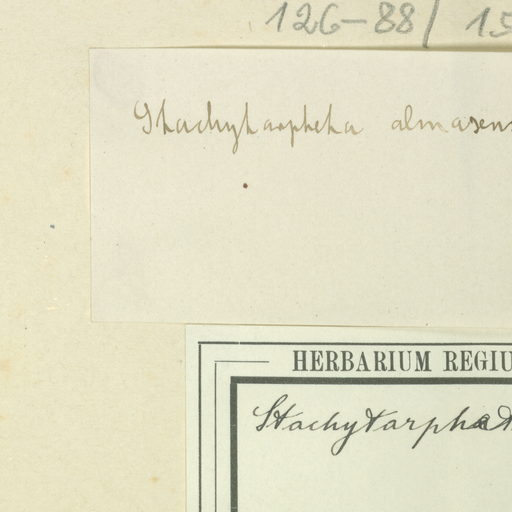 126-88/ 15
Stachytarpheta almasens
HERBARIUM REGIU
Stachytarphet